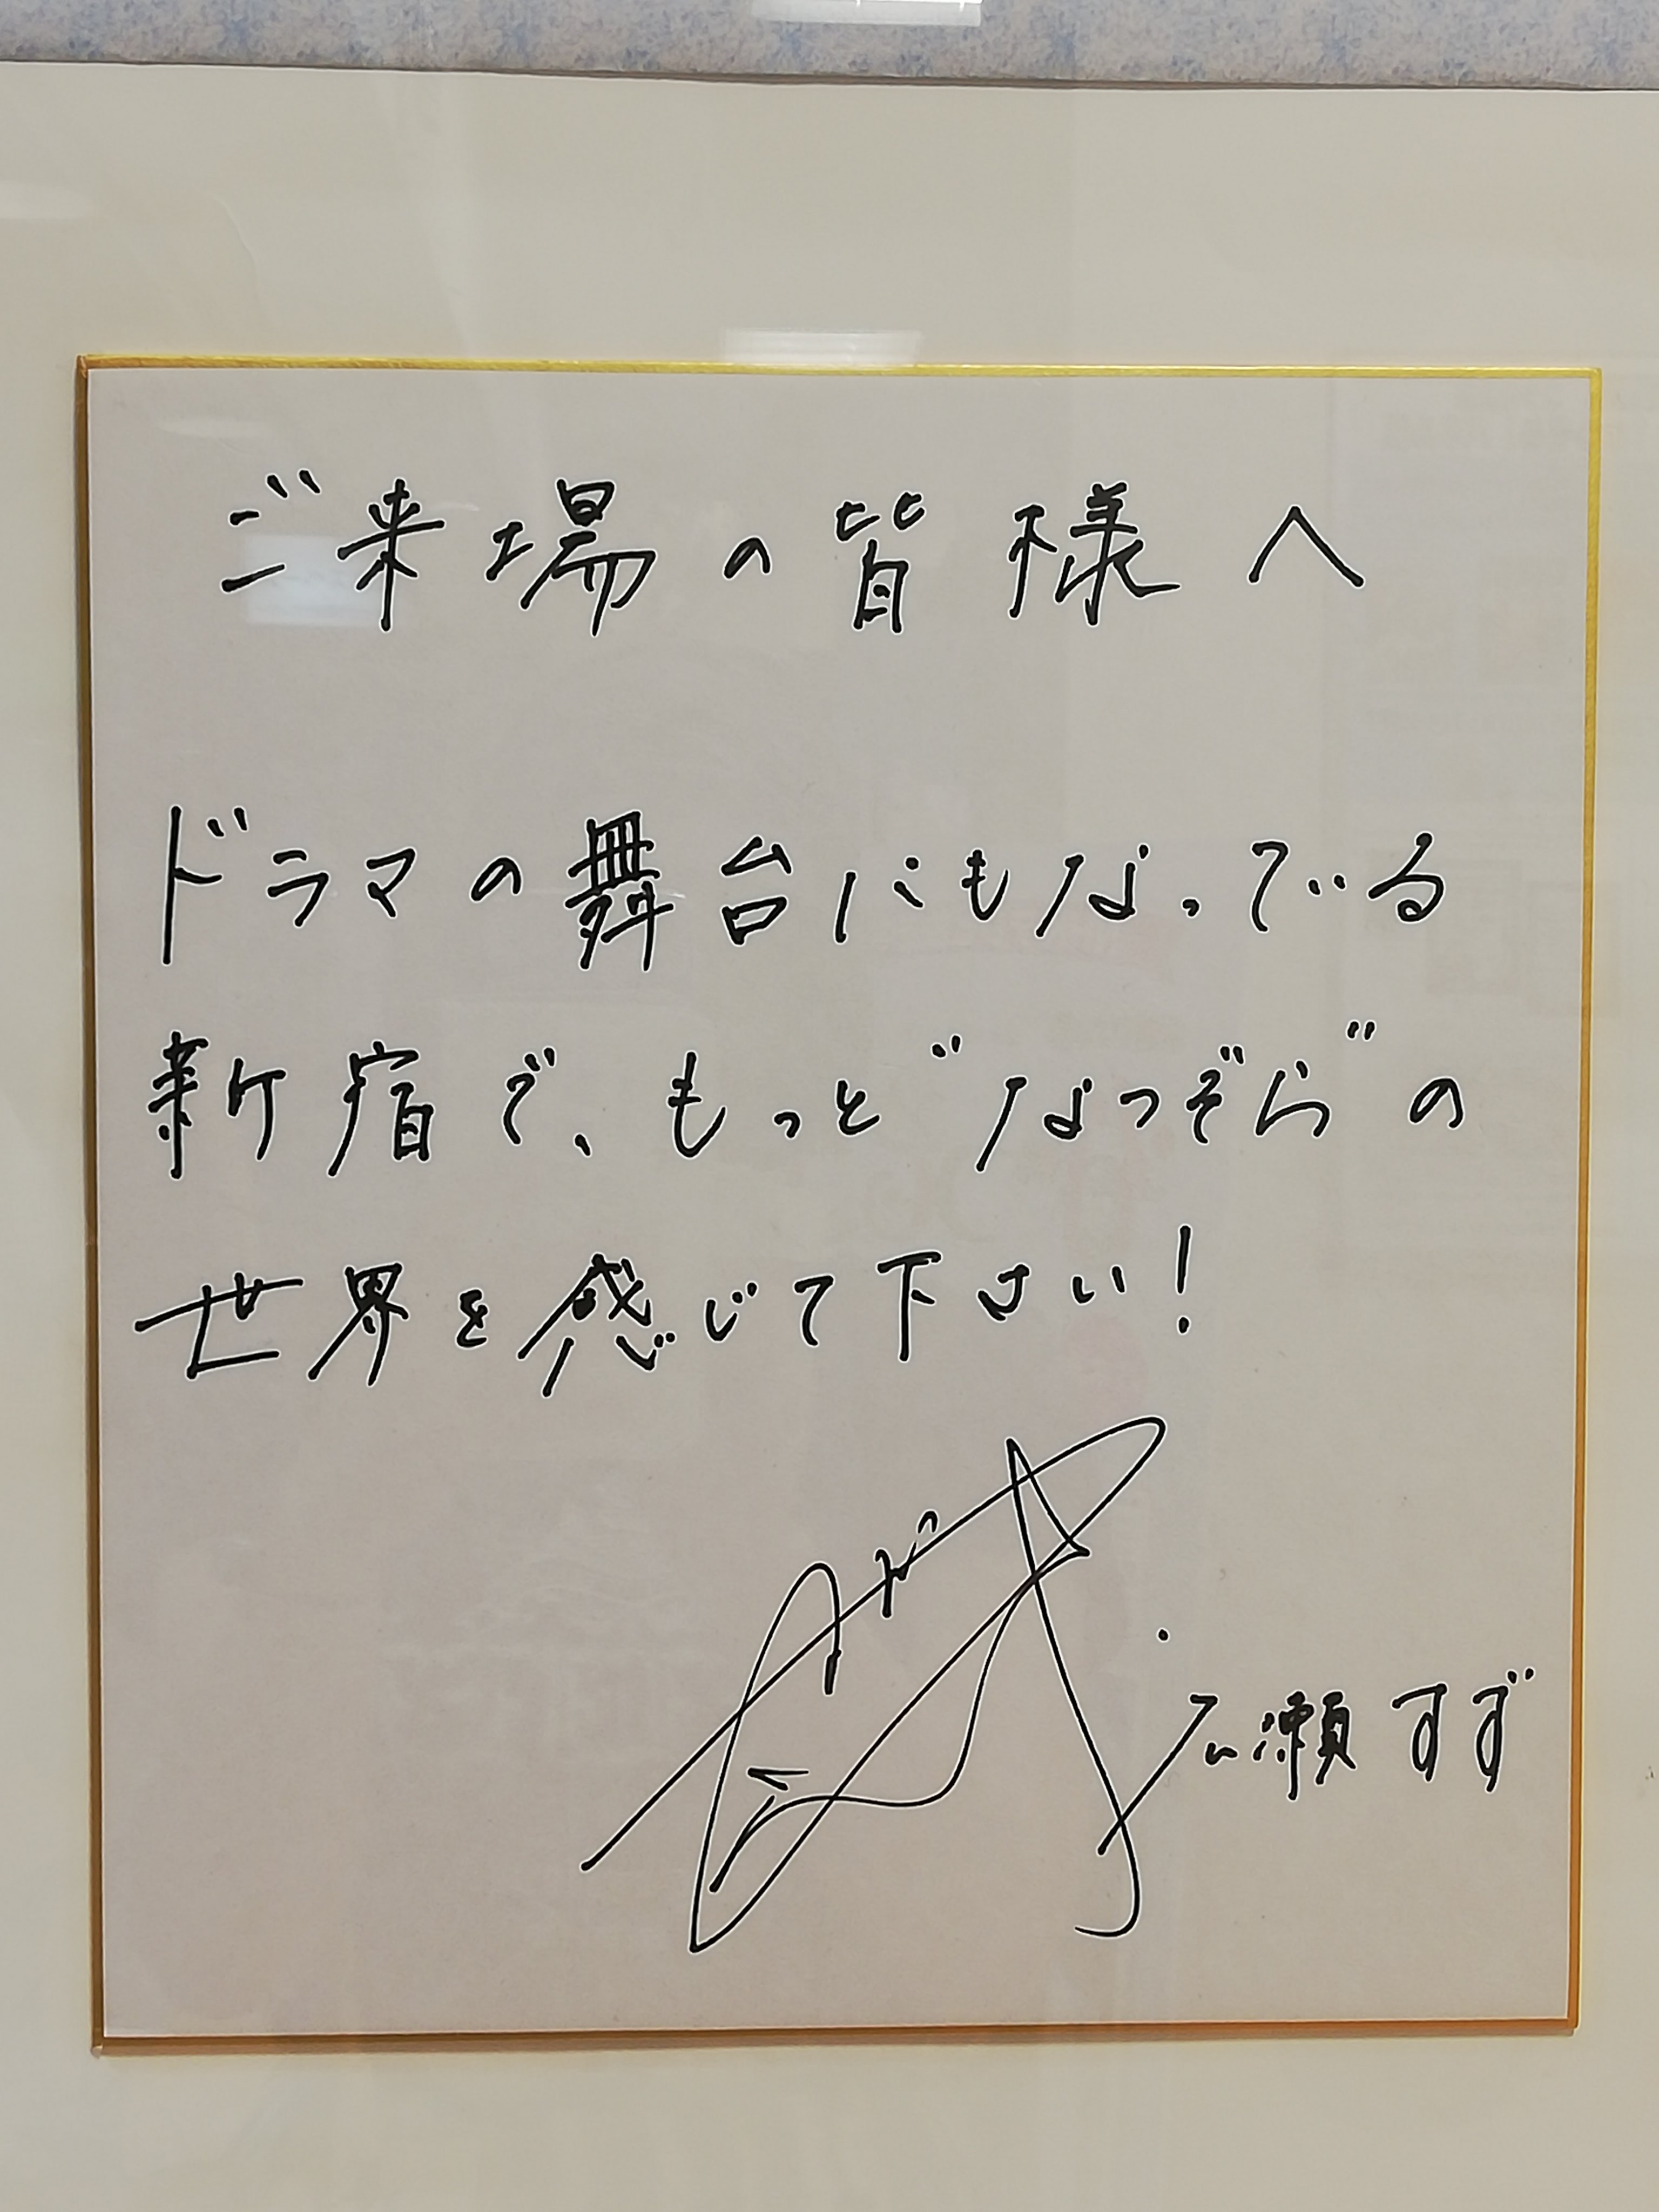 ご来場の皆様へ
ドラマの舞台にもなっている
新宿で、もっと"なつぞら"の
世界を感じて下さい!
広瀬すず